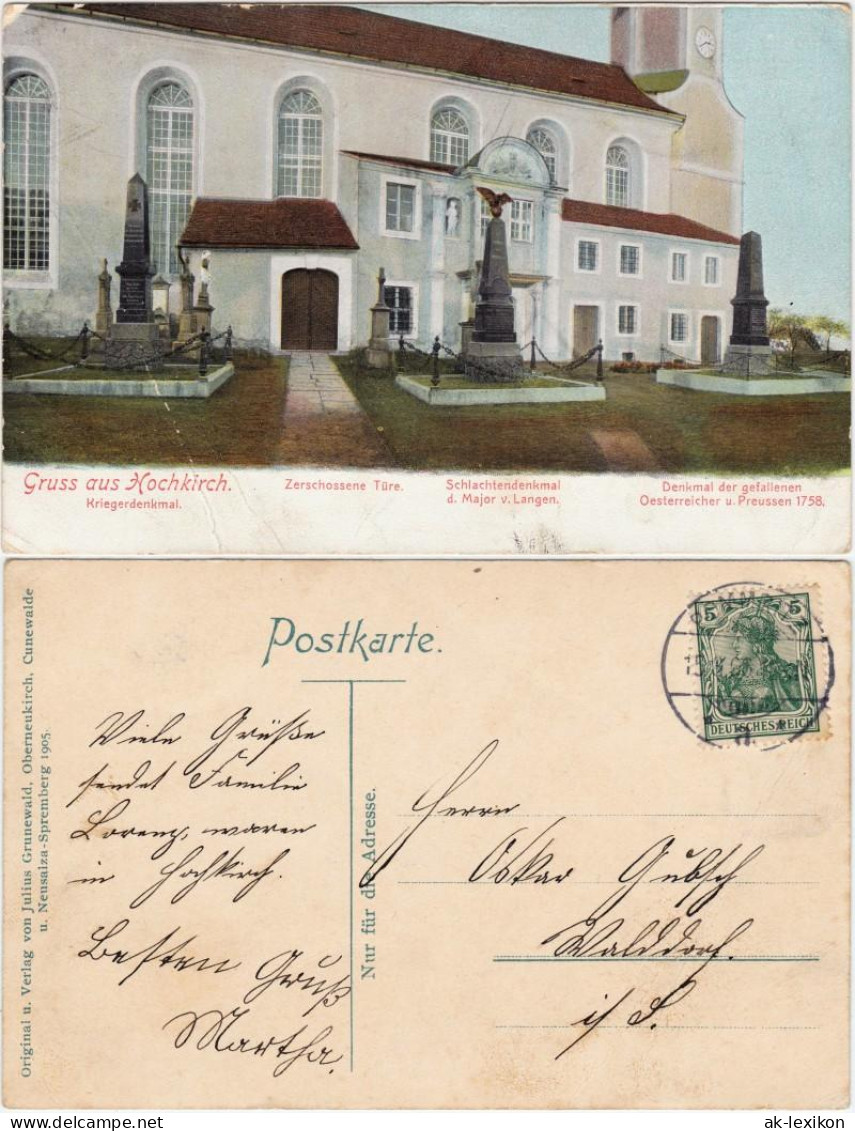 Gruss aus Hochkirch.
Kriegerdenkmal.
Zerschossene Türe.
Schlachtendenkmal
d. Major v. Langen.
Denkmal der gefallenen
Oesterreicher u. Preussen 1758.
Original u. Verlag von Julius Grunewald, Oberneukirch, Cunewalde
u. Neusalza-Spremberg 1905.
Postkarte.
Nur für die Adresse.
5 5
DEUTSCHES REICH
Viele Grüße
sendet Familie
Lorenz, waren
in Hochkirch.
Besten Gruß
Martha.
Herrn
Oskar Gubsch
Walddorf.
i/S.
www.ansichtskarten-lexikon.de
ak-lexikon